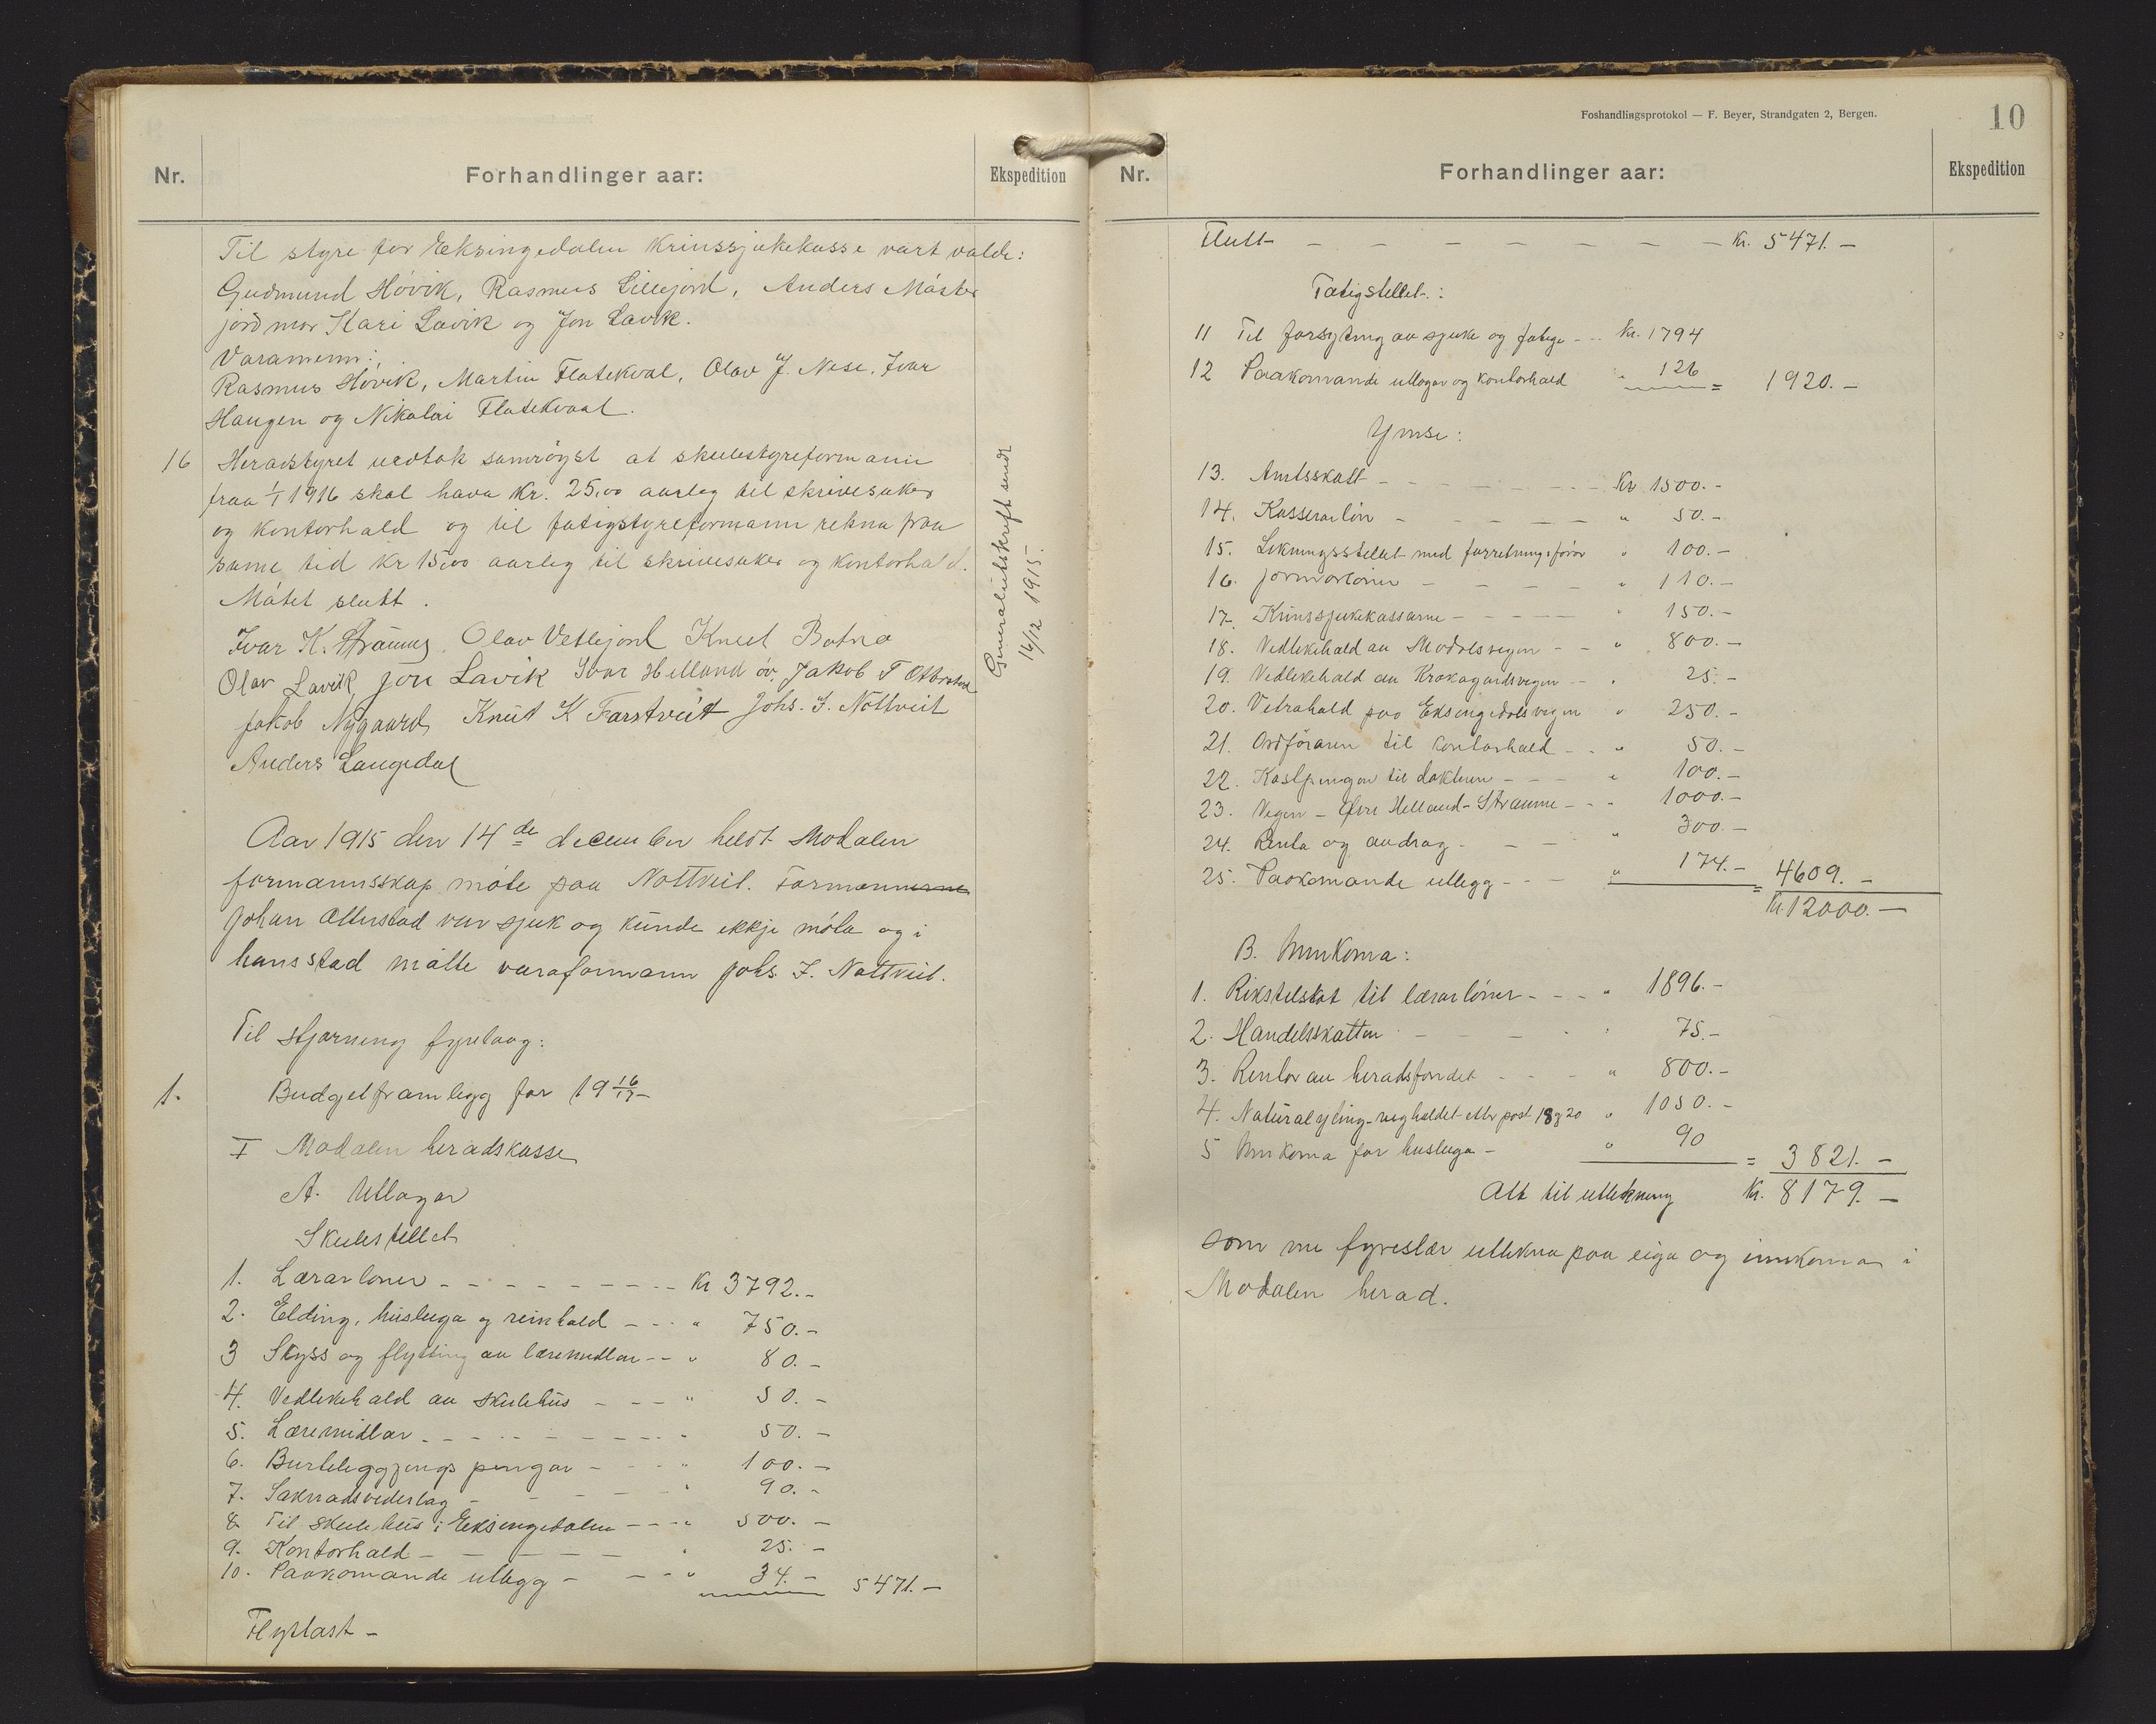 Nr.
Forhandlinger aar:
Ekspedition
Til styre for Eksingedalen Krinssjukekasse vart valde:
Gudmund Høvik, Rasmus Lillejord, Anders
jordmor Kari Lavik og Jon Lavik.
Varamenn:
Rasmus Høvik, Martin Flatekval, Olav J. Nese, Ivar
Haugen og Nikolai Flatekvaal.
16 Heradstyret vedtok samrøyst at skulestyreformann
fraa 1/1 1916 skal hava Kr. 25,00 aarleg til skrivesaker
og kontorhald og til fatigstyreformann rekna fraa
same tid Kr 15,00 aarleg til skrivesaker og kontorhald.
Møtet slutt.
Generalutskrift sendt
16/12 1915.
Ivar K. Straume. Olav Vetlejord Knut Botna
Olav Lavik Jon Lavik Ivar Helland øv. Jakob T
Jakob Nygaard Knut K Farstveit Johs. I. Nottveit
Anders Langedal
Aar 1915 den 14de december heldt Modalen
formannsskap møte paa Nottveit. Formennerne
Johan Otterstad var sjuk og kunde ikkje møta og i
hans stad møtte varaformann Johs. I. Nottveit.
Til styrning fyrelaag:
1. Budgetframlegg for 19 16/17
I Modalen heradskasse
A. Utlagor
Skulestellet
1. Lærarløner - - - - - - - - - Kr 3792.-
2. Elding, husleiga og reinhald - - - " 750.-
3 Skyss og flytting av læremidlar - - " 80.-
4. Vedlikehald av skulehus - - - " 50.-
5. Læremidlar - - - - - - - - - " 50.-
6. Burteleggjings pengar - - - - " 100.-
7. Saknadsvederlag - - - - - " 90.-
8. Til skulehus i Eksingedalen - - - " 500.-
9. Kontorhald - - - - - - " 25.-
10. Paakomande utlegg - - - - " 34.- 5471.-
Flyttast -
Foshandlingsprotokol — F. Beyer, Strandgaten 2, Bergen.
10
Nr.
Forhandlinger aar:
Ekspedition
Flutt - - - - - - - - - Kr. 5471.-
Fatigstellet:
11 Til forsyting av sjuke og fatige - - - Kr. 1794
12 Paakomande utlagor og kontorhald " 126 = 1920.-
Ymse:
13. Amtsskatt - - - - - - - - Kr 1500.-
14. Kasserarløn - - - - - - " 50.-
15. Likningsstellet med forretningsførar " 100.-
16. Jormorløner - - - - - " 110.-
17. Krinssjukekassarne - - - - - " 150.-
18. Vedlikehald av Modalsvegen - - " 800.-
19. Vedlikehald av Krokagardsvegen - - " 25.-
20. Vetrahald paa Eksingedalsvegen " 250.-
21. Ordføraren til kontorhald - - - " 50.-
22. Kostpengar til dokteren - - - " 100.-
23. Vegen - Øvre Helland - Straume - - " 1000.-
24. Renta og avdrag - - - " 300.-
25. Paakomande utlegg - - - " 174.- = 4609.-
Kr. 12000.-
B. Innkoma:
1. Rikstilskot til lærarløner - - - " 1896.-
2. Handelsskatten - - - - - " 75.-
3. Rentor av heradsfondet - - - - " 800.-
4. Naturalyting - veghaldet etter post 18 og 20 " 1050.-
5 Innkoma for husleiga - " 90 = 3821.-
Att til utlikning Kr. 8179.-
som me fyreslær utlikna paa eiga og innkoma i
Modalen herad.